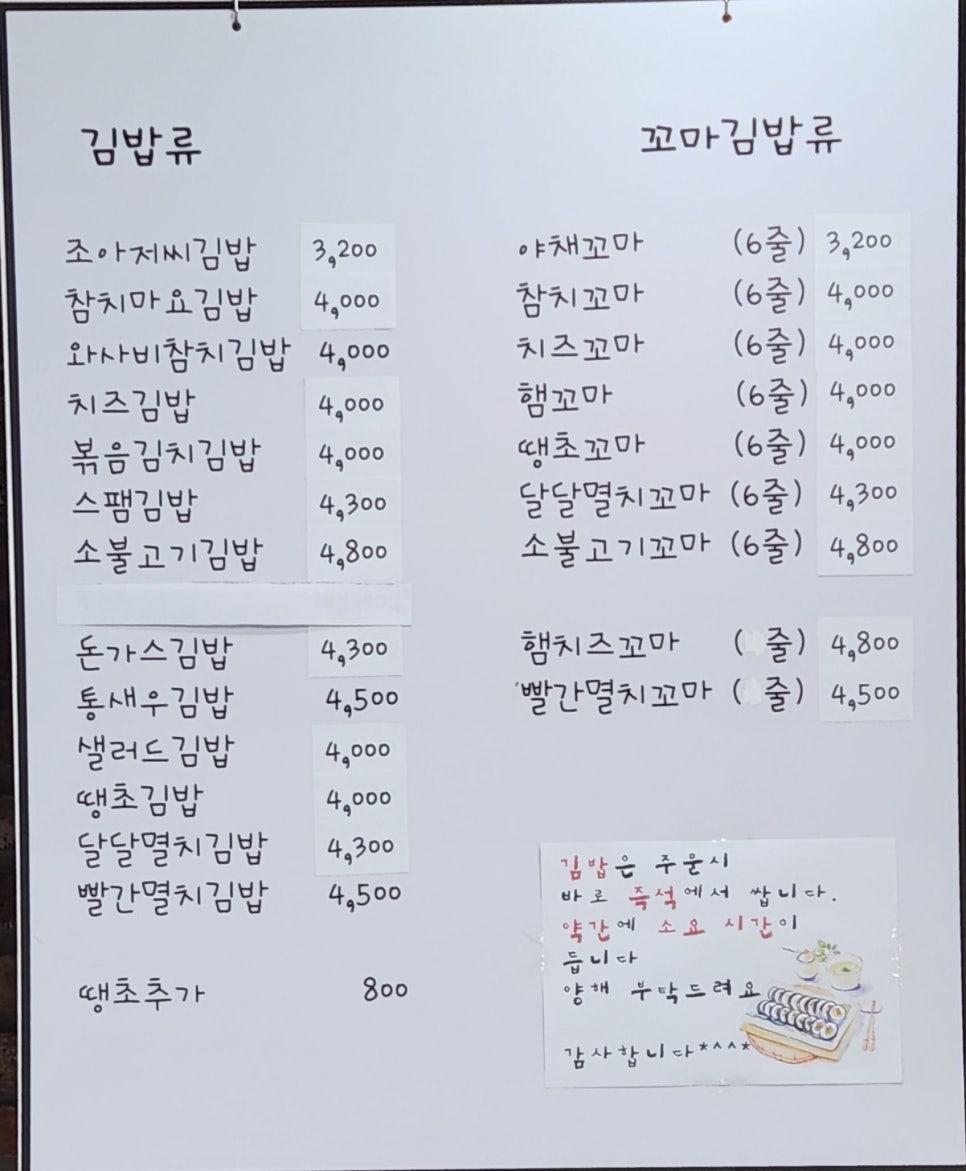 김밥류
조아저씨김밥 3,200
참치마요김밥 4,000
와사비참치김밥 4,000
치즈김밥 4,000
볶음김치김밥 4,000
스팸김밥 4,300
소불고기김밥 4,800
돈가스김밥 4,300
통새우김밥 4,500
샐러드김밥 4,000
땡초김밥 4,000
달달멸치김밥 4,300
빨간멸치김밥 4,500
땡초추가 800
꼬마김밥류
야채꼬마 (6줄) 3,200
참치꼬마 (6줄) 4,000
치즈꼬마 (6줄) 4,000
햄꼬마 (6줄) 4,000
땡초꼬마 (6줄) 4,000
달달멸치꼬마 (6줄) 4,300
소불고기꼬마 (6줄) 4,800
햄치즈꼬마 ( 줄) 4,800
빨간멸치꼬마 ( 줄) 4,500
김밥은 주문시
바로 즉석에서 쌉니다.
약간에 소요 시간이
듭니다
양해 부탁드려요
감사합니다*^^*